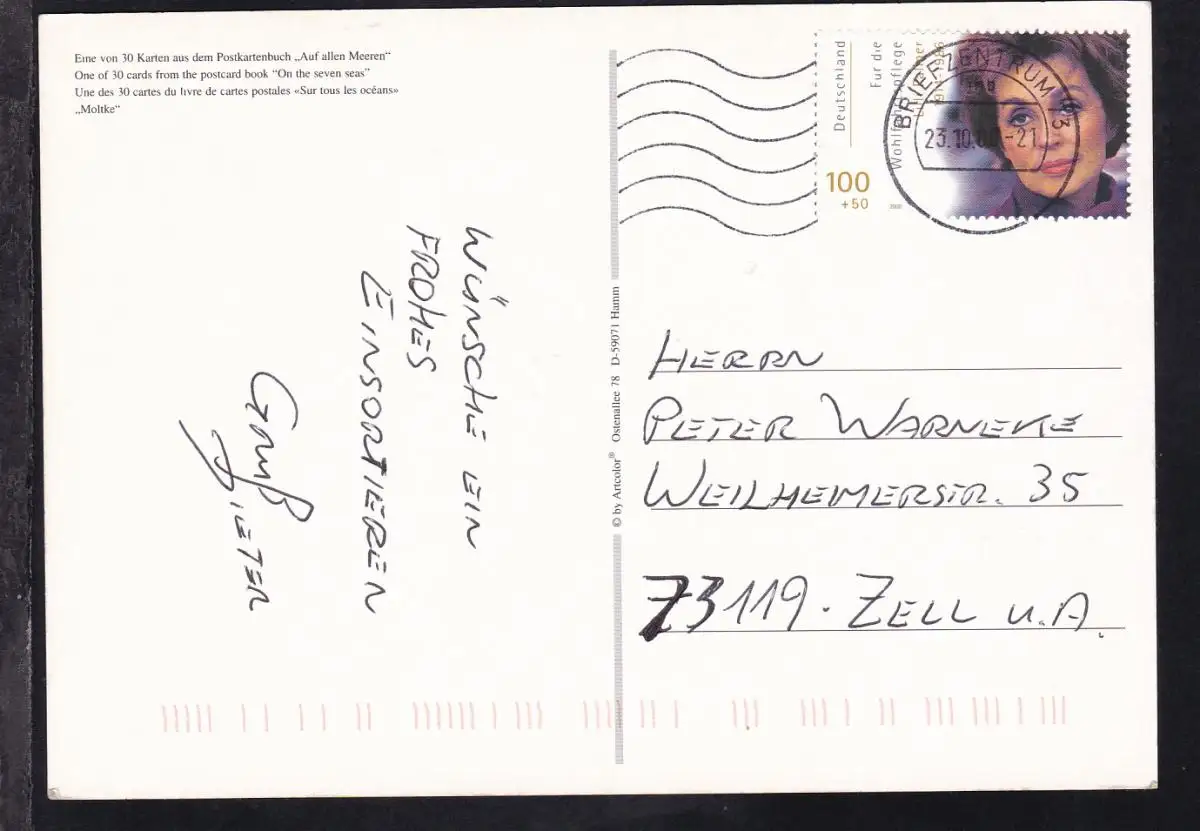 Eine von 30 Karten aus dem Postkartenbuch „Auf allen Meeren“
One of 30 cards from the postcard book “On the seven seas”
Une des 30 cartes du livre de cartes postales «Sur tous les océans»
„Moltke“
WÜNSCHE EIN
FROHES
EINSORTIEREN
Gruß
DIETER
© by Artcolor® Ostenallee 78 D-59071 Hamm
Deutschland
Für die
Wohlfahrtspflege
100
+50
2000
BRIEFZENTRUM
23.10.00-21
HERRN
PETER WARNEKE
WEILHEIMERSTR. 35
73119. ZELL U.A.